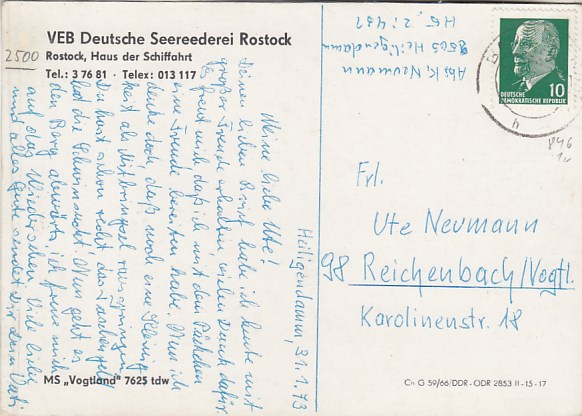 VEB Deutsche Seereederei Rostock
Rostock, Haus der Schiffahrt
Tel.: 3 76 81 · Telex: 013 117
2500
Abs. K. Neumann
2505 Heiligendamm
H5, Zi 431
DEUTSCHE
DEMOKRATISCHE REPUBLIK
10
846
Heiligendamm, 31.1.73
Meine liebe Ute!
Deinen lieben Brief habe ich heute mit
großer Freude erhalten, vielen Dank dafür
Es freut mich, daß ich mit dem Päckchen
eine Freude bereiten habe. Nun ich
denke doch, daß noch eine Kleinig
keit als Mitbringsel rausspringen
Du hast schon recht das Taschengeld
hat die Schwindsucht. Nun geht es
den Berg abwärts, ich freue mich
auf das Wiedersehen. Viele liebe
und alles Gute sendet Dir Dein Vati
Frl.
Ute Neumann
98 Reichenbach/Vogtl.
Karolinenstr. 18
MS „Vogtland" 7625 tdw
Cn G 59/66/DDR - ODR 2853 II-15-17